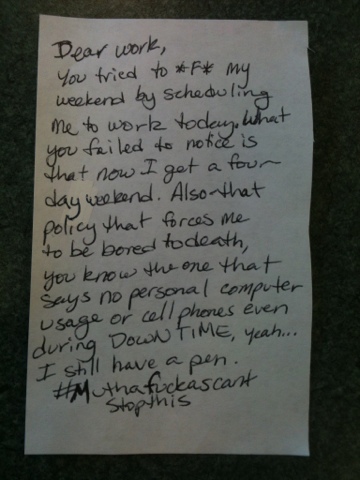 Dear work,
You tried to *F* my
weekend by scheduling
me to work today. What
you failed to notice is
that now I get a four-
day weekend. Also that
policy that forces me
to be bored to death,
you know the one that
says no personal computer
usage or cell phones even
during DOWN TIME, yeah...
I still have a pen.
#Muthafuckascant
stopthis